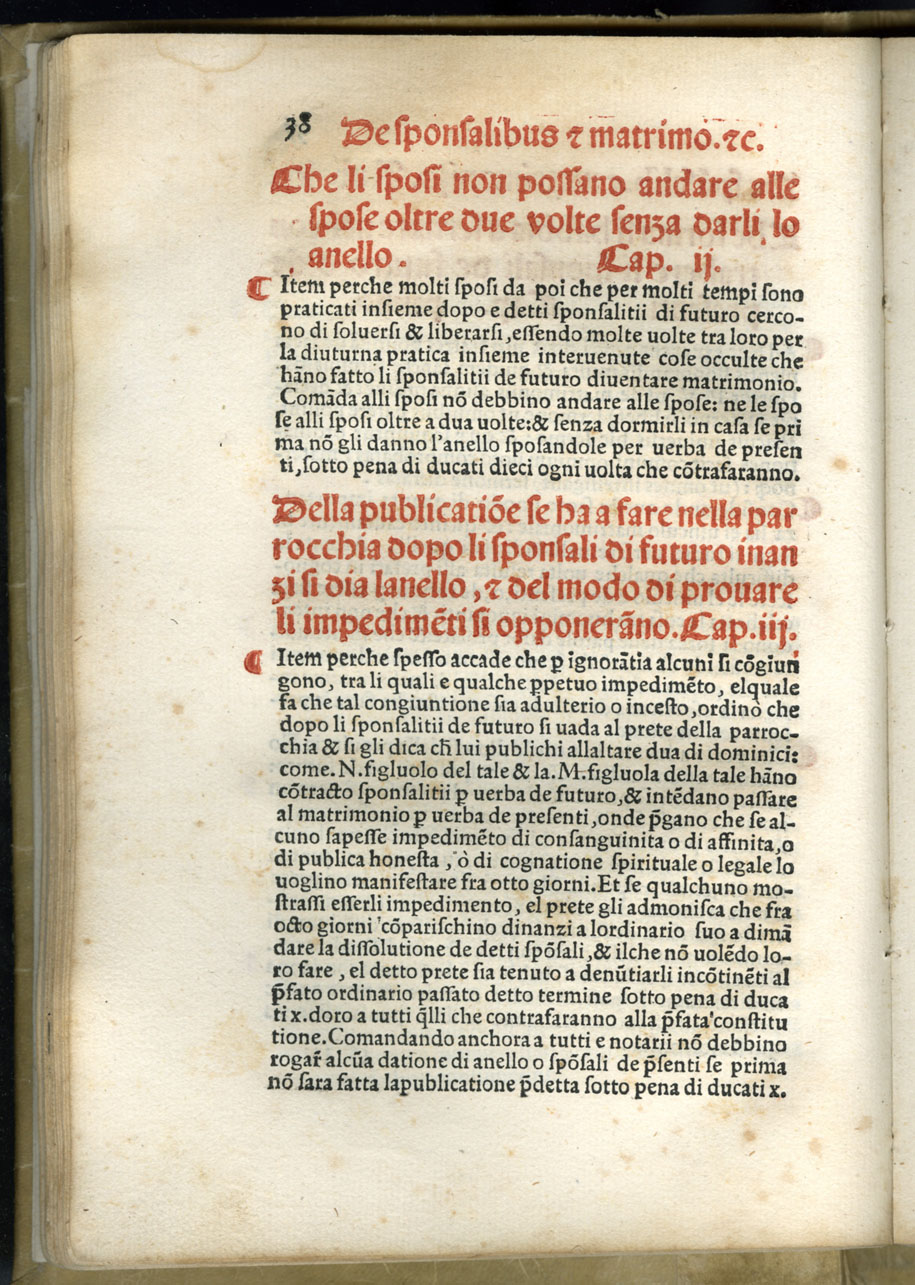 38 De sponsalibus ⁊ matrimo.⁊c.
Che li sposi non possano andare alle
spose oltre due volte senza darli lo
anello. Cap. ij.
¶ Item perche molti sposi da poi che per molti tempi sono
praticati insieme dopo e detti sponsalitii di futuro cerco-
no di soluersi & liberarsi, essendo molte uolte tra loro per
la diuturna pratica insieme interuenute cose occulte che
hāno fatto li sponsalitii de futuro diuentare matrimonio.
Comāda alli sposi nō debbino andare alle spose: ne le spo
se alli sposi oltre a dua uolte:& senza dormirli in casa se pri
ma nō gli danno l'anello sposandole per uerba de presen
ti, sotto pena di ducati dieci ogni uolta che cōtrafaranno.
Della publicatiōe se ha a fare nella par
rocchia dopo li sponsali di futuro inan
zi si dia lanello, ⁊ del modo di prouare
li impedimēti si opponerāno. Cap.iij.
¶ Item perche spesso accade che ꝑ ignorātia alcuni si cōgiun
gono, tra li quali e qualche ꝑpetuo impedimēto, elquale
fa che tal congiuntione sia adulterio o incesto, ordinò che
dopo li sponsalitii de futuro si uada al prete della parroc-
chia & si gli dica ch̄ lui publichi allaltare dua di dominici:
come. N. figluolo del tale & la. M. figluola della tale hāno
cōtracto sponsalitii ꝑ uerba de futuro, & intēdano passare
al matrimonio ꝑ uerba de presenti, onde p̄gano che se al-
cuno sapesse impedimēto di consanguinita o di affinita, o
di publica honesta, ò di cognatione spirituale o legale lo
uoglino manifestare fra otto giorni. Et se qualchuno mo-
strassi esserli impedimento, el prete gli admonisca che fra
octo giorni 'cōparischino dinanzi a lordinario suo a dimā
dare la dissolutione de detti spōsali, & ilche nō uolēdo lo-
ro fare, el detto prete sia tenuto a denūtiarli incōtinēti al
p̄fato ordinario passato detto termine sotto pena di duca
ti x.doro a tutti q̄lli che contrafaranno alla p̄fata'constitu
tione. Comandando anchora a tutti e notarii nō debbino
rogar̄ alcūa datione di anello o spōsali de p̄senti se prima
nō sara fatta lapublicatione p̄detta sotto pena di ducati x.